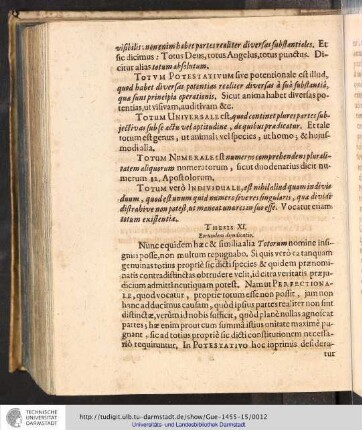 visibilis: non enim habet partes realiter diversas substantiales. Et
sic dicimus: Totus Deus, totus Angelus, totus punctus. Di-
citur alias totum absolutum.
TOTUM POTESTATIVUM sive potentionale est illud,
quod habet diversas potentias realiter diversas à suâ substantiâ,
quæ sunt principia operationis. Sicut anima habet diversas po-
tentias, ut visivam, auditivam &c.
TOTUM UNIVERSALE est, quod continet plures partes sub-
jectivas sub se actu vel aptitudine, de quibus prædicatur. Et tale
totum est genus, ut animal; vel species, ut homo; & hujus-
modi alia.
TOTUM NUMERALE est numerus comprehendens plurali-
tatem aliquorum numeratorum, sicut duodenarius dicit nu-
merum 12. Apostolorum.
TOTUM verò INDIVIDUALE, est nihil aliud quam in divi-
duum, quod est unum quid numero sive res singularis, quæ dividi
distrahive non potest, ut maneat unares in suo esse. Vocatur etiam
totum existentiæ.
THESIS XI.
Eorundem
Nunc equidem hæc & similia alia Totorum nomine insi-
gniri posse, non multum repugnabo. Si quis verò ea tanquam
genuinas totius propriè sic dicti species & quidem prænomi-
natis contradistinctas obtrudere velit, id citra veritatis præju-
dicium admitti nequitquam potest. Nam ut PERFECTIONA-
LE, quod vocatur, proprie totum esse non possit, jam non
hanc adducimus causam, quòd ipsius partes realiter non sint
distinctæ, verùm id nobis sufficit, quòd planè nullas agnoscat
partes; hæ enim prout cum summâ istius unitate maximè pu-
gnant, sic ad totius propriè sic dicti constitutionem necessa-
riò requiruntur. In POTESTATIVO hoc inprimis desidera-
tur
TECHNISCHE
UNIVERSITÄT
DARMSTADT
http://tudigit.ulb.tu-darmstadt.de/show/Gue-1455-15/0012
Universitäts- und Landesbibliothek Darmstadt